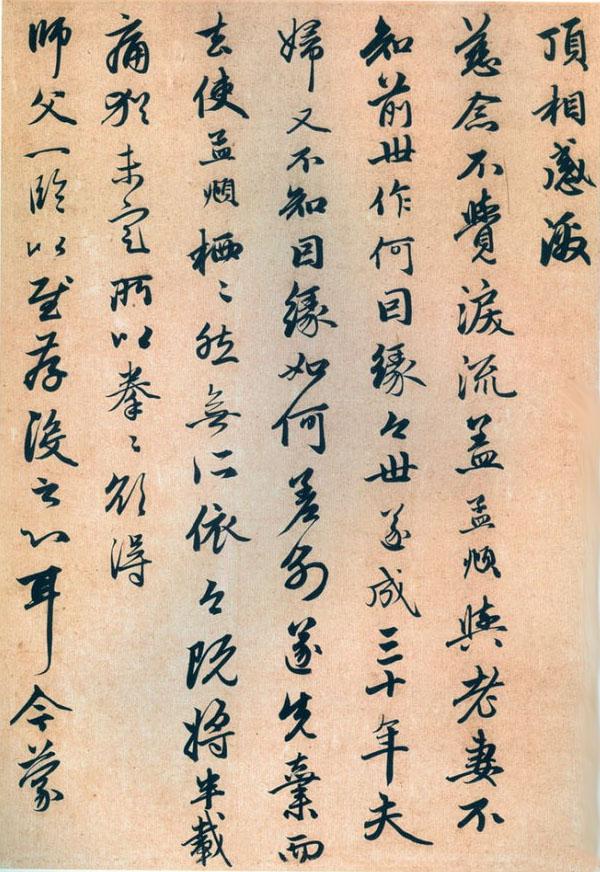 頂相感激
慈念不覺淚流蓋孟頫與老妻不
知前世作何因緣今世遂成三十年夫
婦又不知因緣如何差別遂先棄而
去使孟頫栖々然無所依今既將半載
痛猶未定所以拳々欲得
師父一臨以慰存没之心耳今蒙